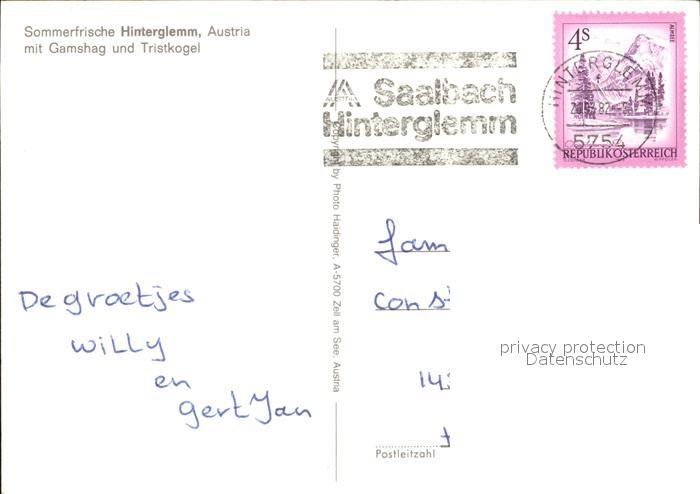 Sommerfrische Hinterglemm, Austria
mit Gamshag und Tristkogel
AUSTRIA
Saalbach
Hinterglemm
4S
ALMSEE
HINTERGLEMM
5754
REPUBLIK ÖSTERREICH
Copyright by Photo Haidinger, A-5700 Zell am See, Austria
De groetjes
Willy
en
GertJan
fam
const
privacy protection
Datenschutz
14
Postleitzahl